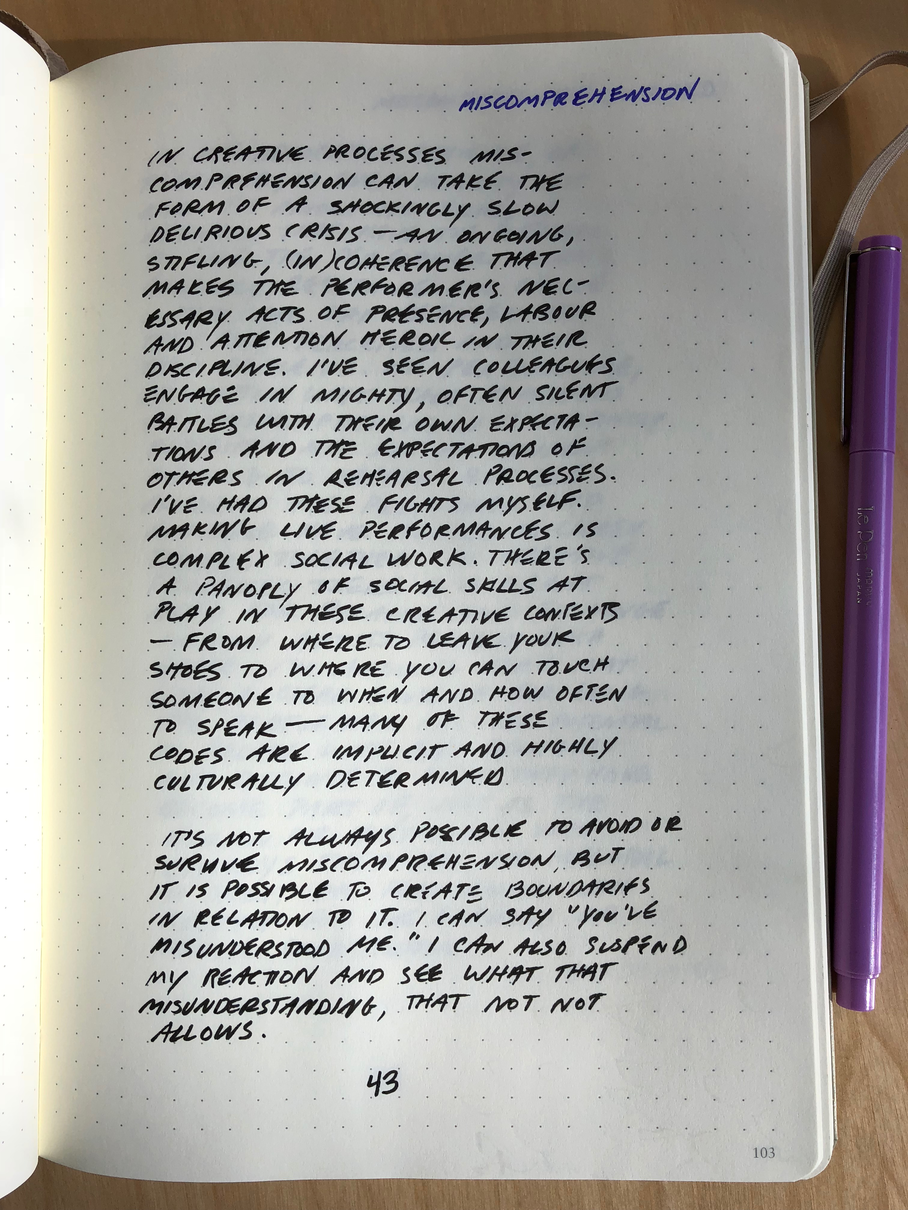 MISCOMPREHENSION
IN CREATIVE PROCESSES MIS-
COMPREHENSION CAN TAKE THE
FORM OF A SHOCKINGLY SLOW
DELIRIOUS CRISIS — AN ONGOING,
STIFLING, (IN)COHERENCE THAT
MAKES THE PERFORMER'S NEC-
ESSARY ACTS OF PRESENCE, LABOUR
AND ATTENTION HEROIC IN THEIR
DISCIPLINE. I'VE SEEN COLLEAGUES
ENGAGE IN MIGHTY, OFTEN SILENT
BATTLES WITH THEIR OWN EXPECTA-
TIONS AND THE EXPECTATIONS OF
OTHERS IN REHEARSAL PROCESSES.
I'VE HAD THESE FIGHTS MYSELF.
MAKING LIVE PERFORMANCES IS
COMPLEX SOCIAL WORK. THERE'S
A PANOPLY OF SOCIAL SKILLS AT
PLAY IN THESE CREATIVE CONTEXTS
— FROM WHERE TO LEAVE YOUR
SHOES TO WHERE YOU CAN TOUCH
SOMEONE TO WHEN AND HOW OFTEN
TO SPEAK — MANY OF THESE
CODES ARE IMPLICIT AND HIGHLY
CULTURALLY DETERMINED.
IT'S NOT ALWAYS POSSIBLE TO AVOID OR
SURVIVE MISCOMPREHENSION, BUT
IT IS POSSIBLE TO CREATE BOUNDARIES
IN RELATION TO IT. I CAN SAY "YOU'VE
MISUNDERSTOOD ME." I CAN ALSO SUSPEND
MY REACTION AND SEE WHAT THAT
MISUNDERSTANDING, THAT NOT NOT
ALLOWS.
43
103
Le Pen
JAPAN